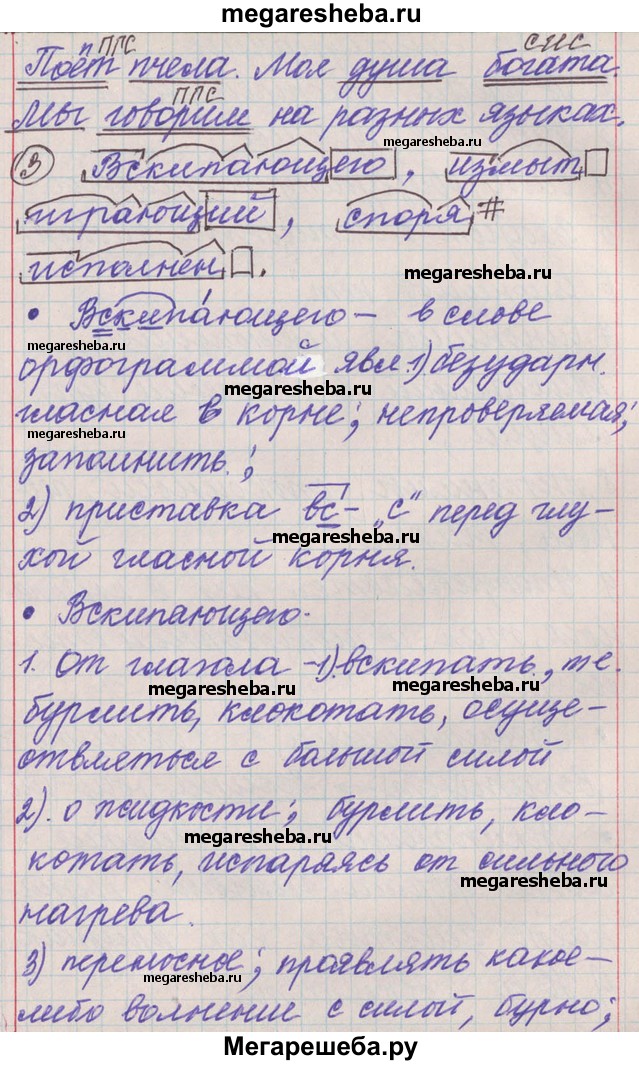 megaresheba.ru
megaresheba.ru
п ПГС
СИС
Поёт пчела. Моя душа богата.
ПГС
Мы говорим на разных языках.
megaresheba.ru
3 Вскипающего, измыт
играющий, споря #
исполнен.
megaresheba.ru
• Вскипа́ющего – в слове
megaresheba.ru
орфограммой явл. 1) безударн.
megaresheba.ru
гласная в корне; непроверяемая;
megaresheba.ru
запомнить.;
2) приставка вс- „с“ перед глу-
megaresheba.ru
хой гласной корня.
• Вскипающего-
1. От глагола – 1) вскипать, те.
megaresheba.ru megaresheba.ru
бурлить, клокотать, осуще-
ствляться с большой силой
2). о жидкости; бурлить, кло-
megaresheba.ru
котать, испаряясь от сильного
megaresheba.ru
нагрева.
3) переносное; проявлять какое-
megaresheba.ru
либо волнение с силой, бурно;
Мегарешеба.ру